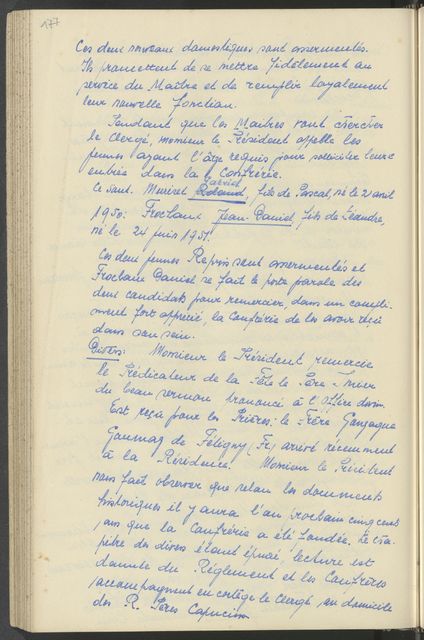 177
Ces deux nouveaux domestiques sont assermentés.
Ils promettent de se mettre fidèlement au
service du Maître et de remplir loyalement
leur nouvelle fonction.
Pendant que les Maîtres vont chercher
le Clergé, monsieur le Président appelle les
jeunes ayant l'âge requis pour solliciter leur
entrée dans la Confrérie.
Ce sont. Muriset, fils de Pascal, né le 2 avril
1950: Frochaux Jean-Daniel, fils de Léandre,
né le 24 juin 1951.
Ces deux jeunes sont assermentés et
Frochaux Daniel se fait le porte parole des
deux candidats pour remercier, dans un compli-
ment fort apprécié, la Confrérie de les avoir reçu
dans son sein.
Divers: Monsieur le Président remercie
le Prédicateur de la Fête le Père
du beau sermon prononcé à l'Office divin.
Est reçu pour les Prières: le Frère Gonzague
de Fétigny (Fr) arrivé récemment
à la Résidence. Monsieur le Président
nous fait observer que selon les documents
historiques il y aura l'an prochain cinq cents
ans que la Confrérie a été fondée. Le cha-
pitre des divers étant épuisé, lecture est
donnée du Règlement et les Confrères
accompagnent en cortège le Clergé au domicile
des R. Pères Capucins